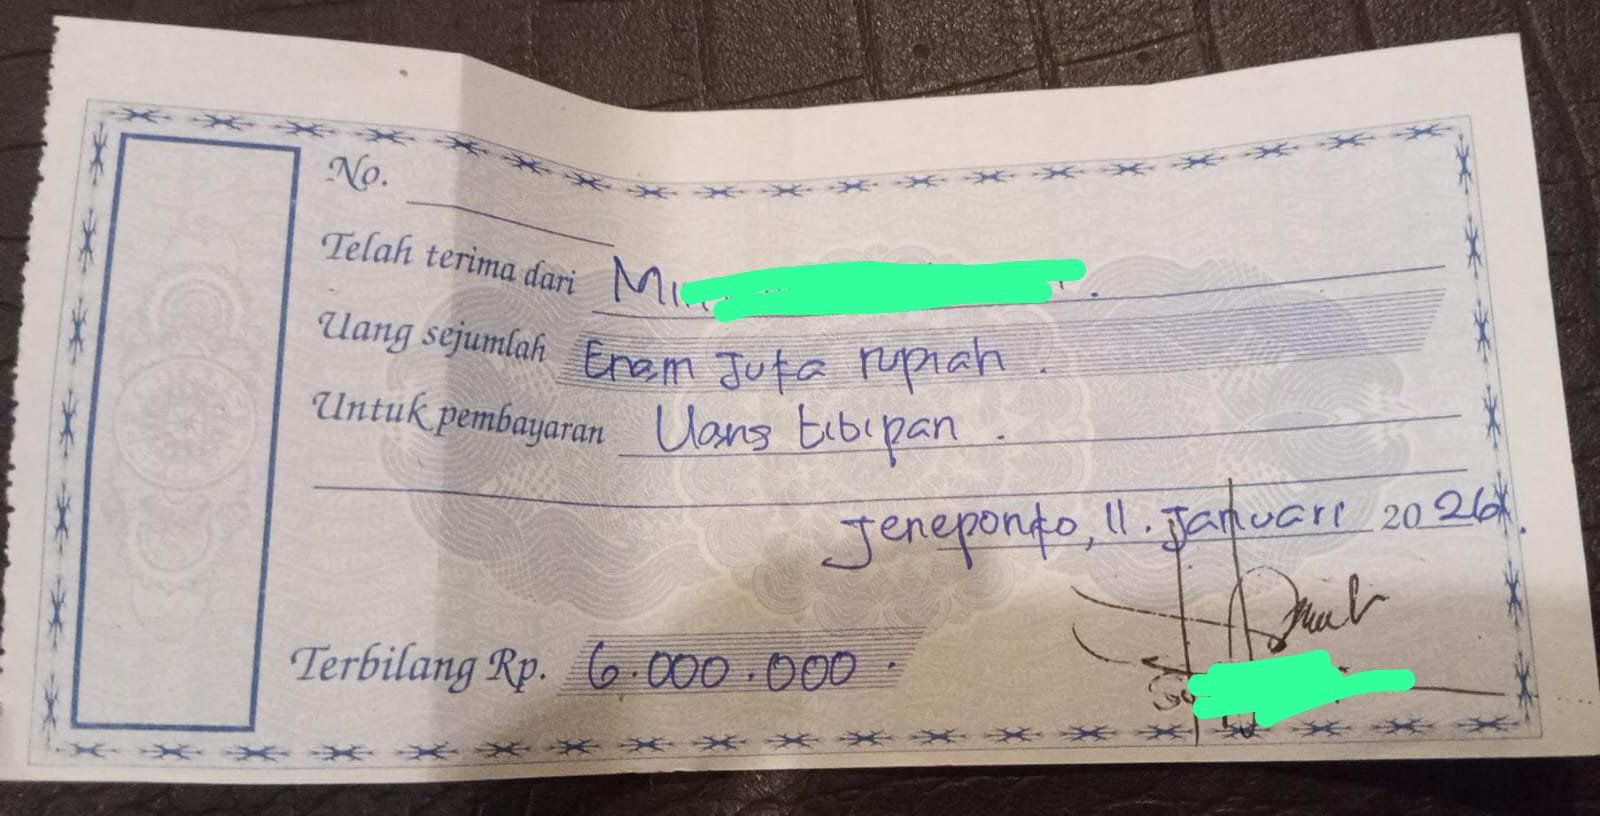 No.
Telah terima dari
Uang sejumlah Enam Juta rupiah.
Untuk pembayaran Uang titipan.
Jeneponto, 11. Januari 2026.
Terbilang Rp. 6.000.000.